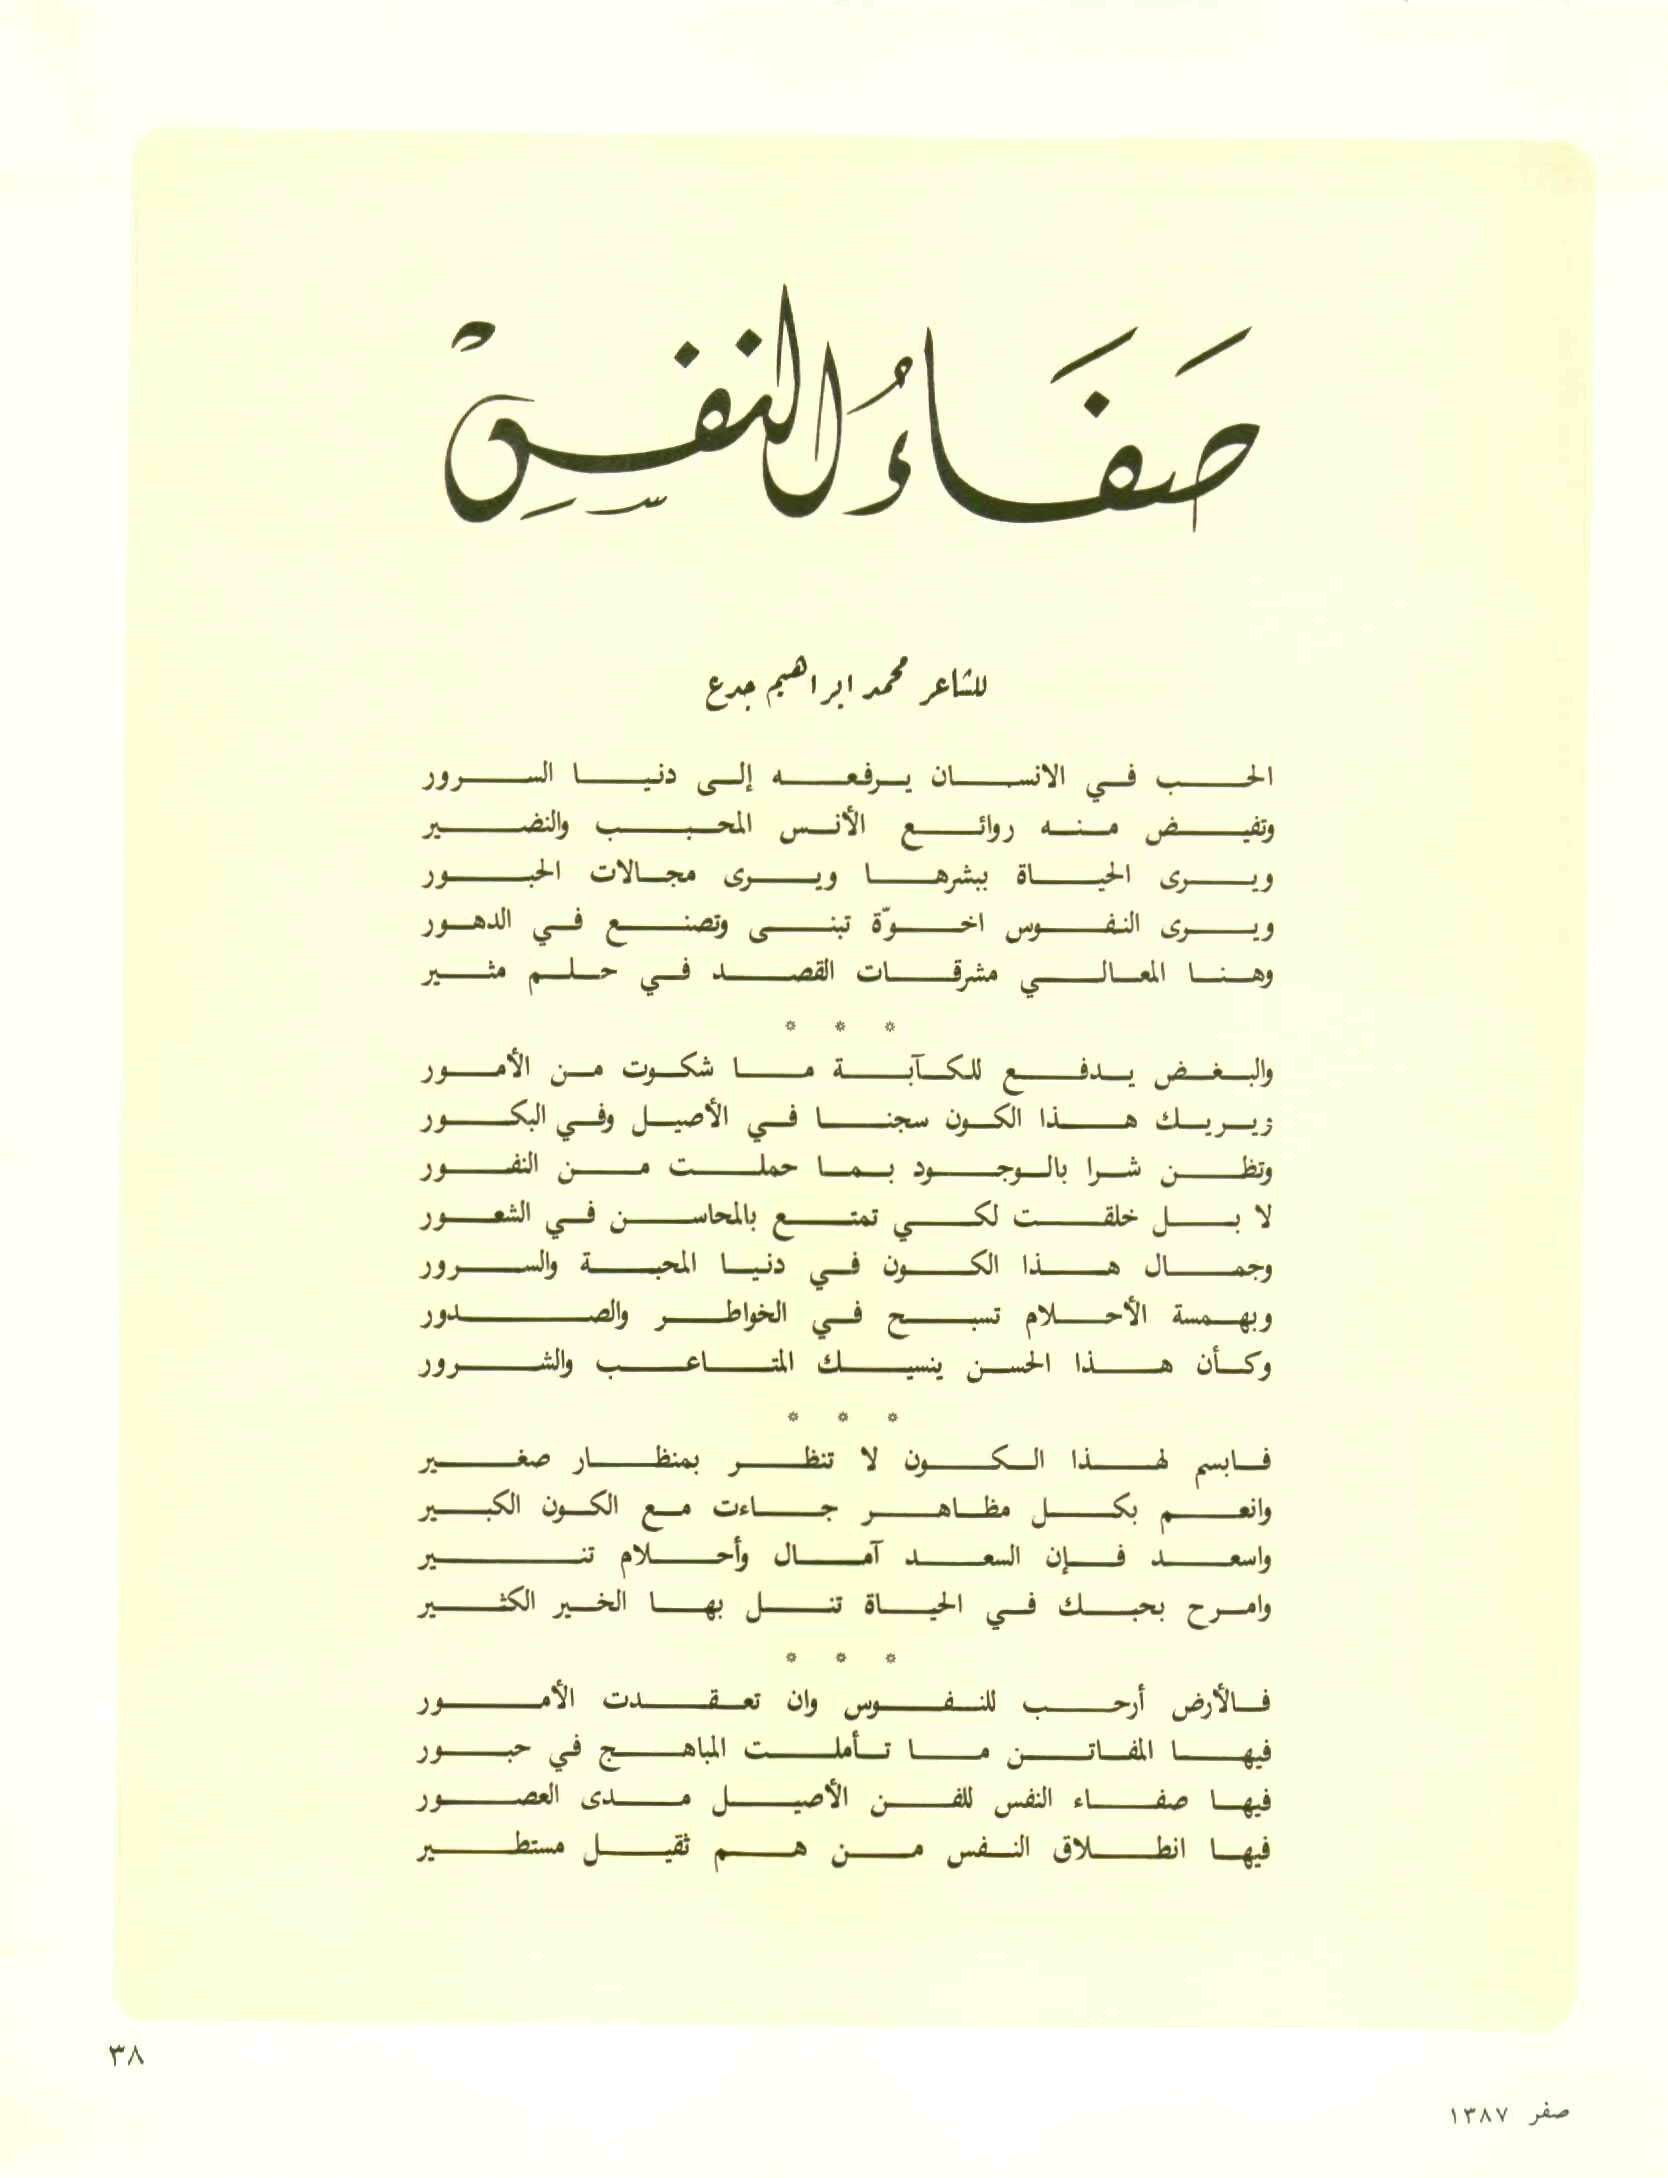 صَفَاءُ النفسْ
للشاعر محمد ابراهيم جدع
الحب في الانسان يرفعه إلى دنيا السرور
وتفيض منه روائع الأنس المحبب والنضير
ويرى الحياة ببشرها ويرى مجالات الحبور
ويرى النفوس اخوّة تبنى وتصنع في الدهور
وهنا المعالي مشرقات القصد في حلم مثير
* * *
والبغض يدفع للكآبة ما شكوت من الأمور
زيريك هذا الكون سجنا في الأصيل وفي البكور
وتظن شرا بالوجود بما حملت من النفور
لا بل خلقت لكي تمتع بالمحاسن في الشعور
وجمال هذا الكون في دنيا المحبة والسرور
وبهمسة الأحلام تسبح في الخواطر والصدور
وكأن هذا الحسن ينسيك المتاعب والشرور
* * *
فابسم لهذا الكون لا تنظر بمنظار صغير
وانعم بكل مظاهر جاءت مع الكون الكبير
واسعد فإن السعد آمال وأحلام تنير
وامرح بحبك في الحياة تنل بها الخير الكثير
* * *
فالأرض أرحب للنفوس وان تعقدت الأمور
فيها المفاتن ما تأملت المباهج في حبور
فيها صفاء النفس للفن الأصيل مدى العصور
فيها انطلاق النفس من هم ثقيل مستطير
٣٨
صفر ١٣٨٧